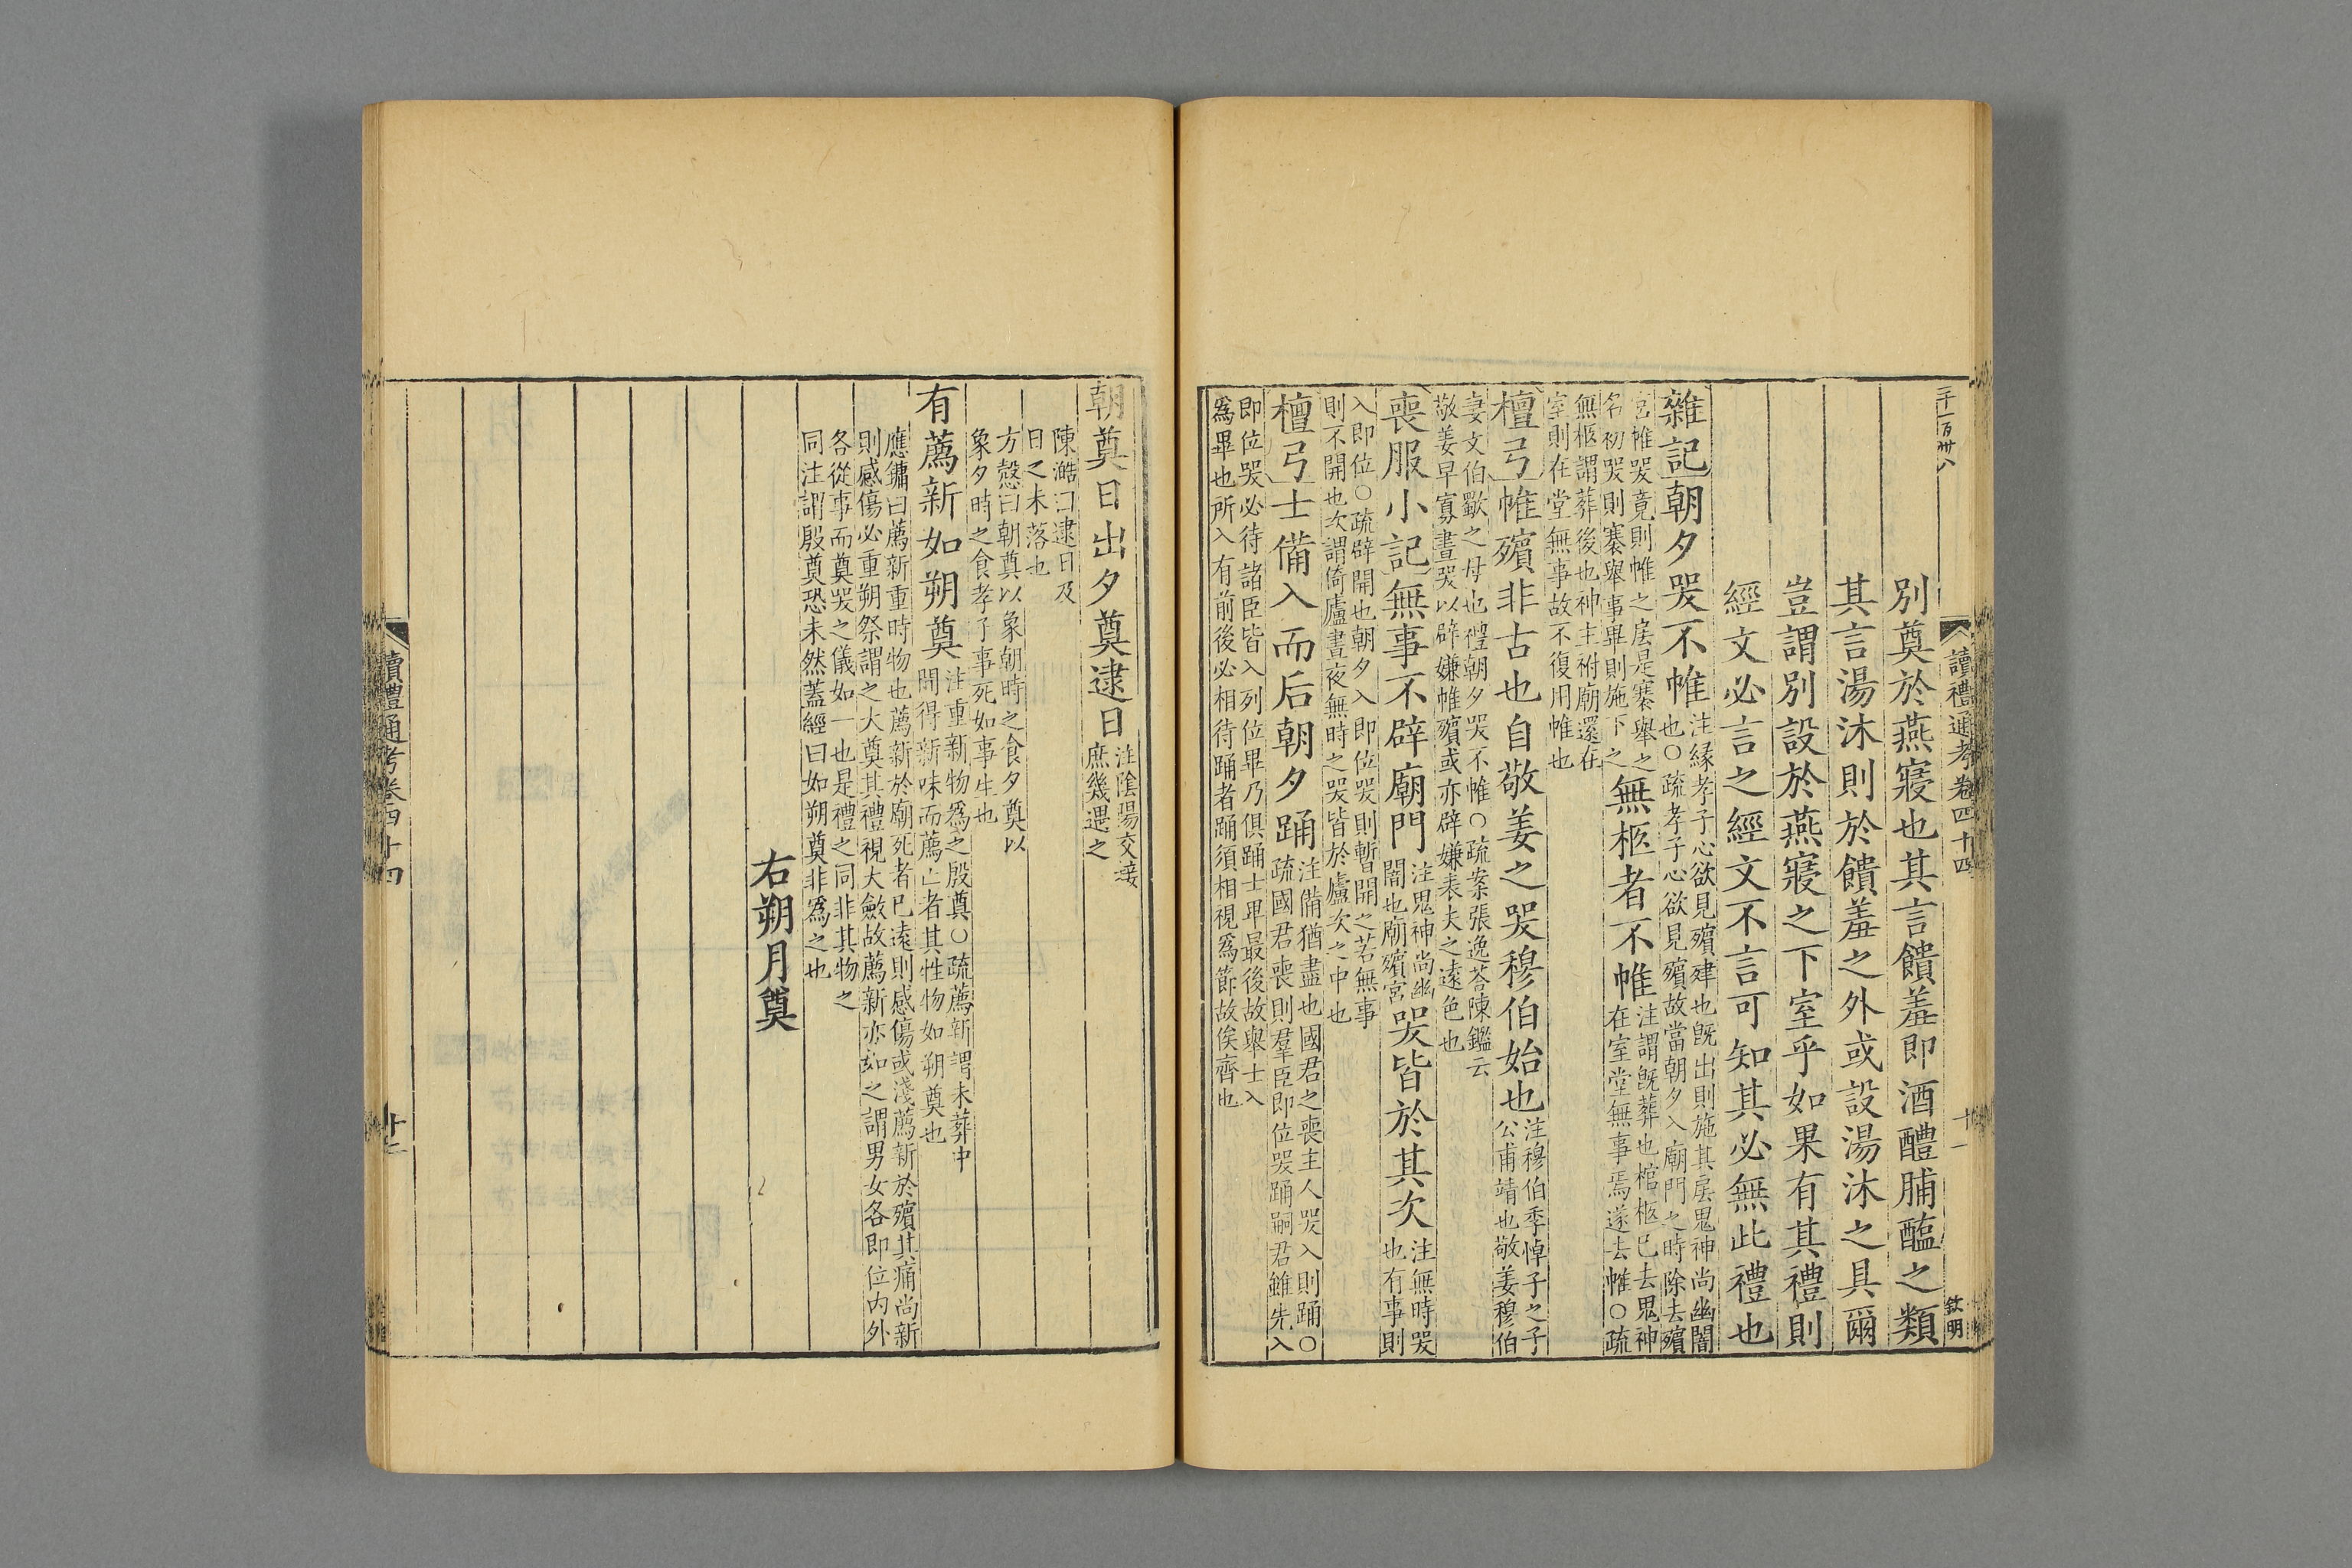 二千一百卅八
讀禮通考卷四十四
十一
欽明
別奠於燕寢也其言饋羞即酒醴脯醢之類
其言湯沐則於饋羞之外或設湯沐之具爾
豈謂別設於燕寢之下室乎如果有其禮則
經文必言之經文不言可知其必無此禮也
雜記朝夕哭不帷
注緣孝子心欲見殯肂也旣出則施其扆鬼神尚幽闇
也○疏孝子心欲見殯故當朝夕入廟門之時除去殯
宮帷哭竟則帷之扆是褰舉之
名初哭則褰舉事畢則施下之
無柩者不帷
注謂旣葬也棺柩已去鬼神
在室堂無事焉遂去帷○疏
無柩謂葬後也神主祔廟還在
室則在堂無事故不復用帷也
檀弓帷殯非古也自敬姜之哭穆伯始也
注穆伯季悼子之子
公甫靖也敬姜穆伯
妻文伯歜之母也禮朝夕哭不帷○疏案張逸荅陳鏗云
敬姜早寡晝哭以辟嫌帷殯或亦辟嫌表夫之遠色也
喪服小記無事不辟廟門
注鬼神尚幽
闇也廟殯宮
哭皆於其次
注無時哭
也有事則
入即位○疏辟開也朝夕入即位哭則暫開之若無事
則不開也次謂倚廬晝夜無時之哭皆於廬次之中也
檀弓士備入而后朝夕踊
注備猶盡也國君之喪主人哭入則踊○
疏國君喪則羣臣即位哭踊嗣君雖先入
即位哭必待諸臣皆入列位畢乃俱踊士卑最後故舉士入
爲畢也所入有前後必相待踊者踊須相視爲節故俟齊也
朝奠日出夕奠逮日
注陰陽交接
庶幾遇之
陳澔曰逮日及
日之未落也
方慤曰朝奠以象朝時之食夕奠以
象夕時之食孝子事死如事生也
有薦新如朔奠
注重新物爲之殷奠○疏薦新謂未葬中
間得新味而薦亡者其牲物如朔奠也
應鏞曰薦新重時物也薦新於廟死者已遠則感傷或淺薦新於殯其痛尚新
則感傷必重朔祭謂之大奠其禮視大斂故薦新亦如之謂男女各即位内外
各從事而奠哭之儀如一也是禮之同非其物之
同注謂殷奠恐未然蓋經曰如朔奠非爲之也
右朔月奠
讀禮通考卷四十四
十二